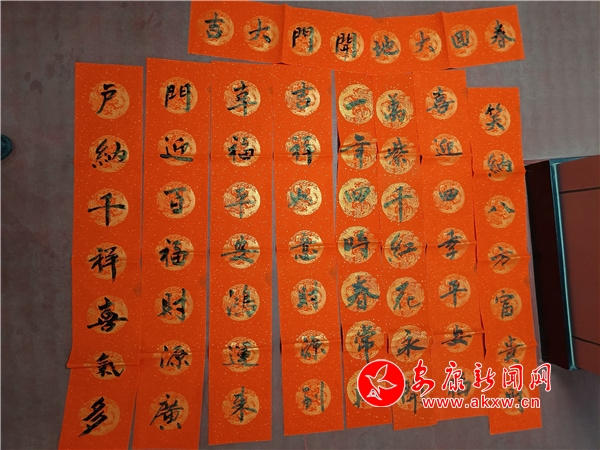 春回大地
開門大吉
笑納八方富貴
喜迎四季平安
萬紫千紅花永開
一年四時春常
吉祥如意財源到
幸福平安鴻運來
門迎百福財源廣
戶納千祥喜氣多
安康新闻网
www.akxw.cn